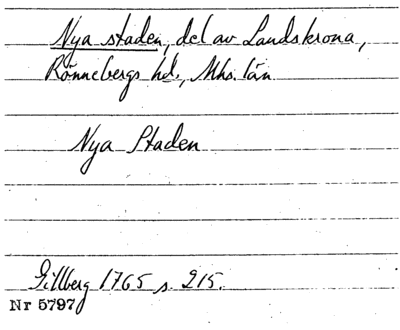 Nya staden, del av Landskrona,
Rönnebergs hd., Mhs. län
Nya Staden
Gillberg 1765 s. 215.
Nr 5797